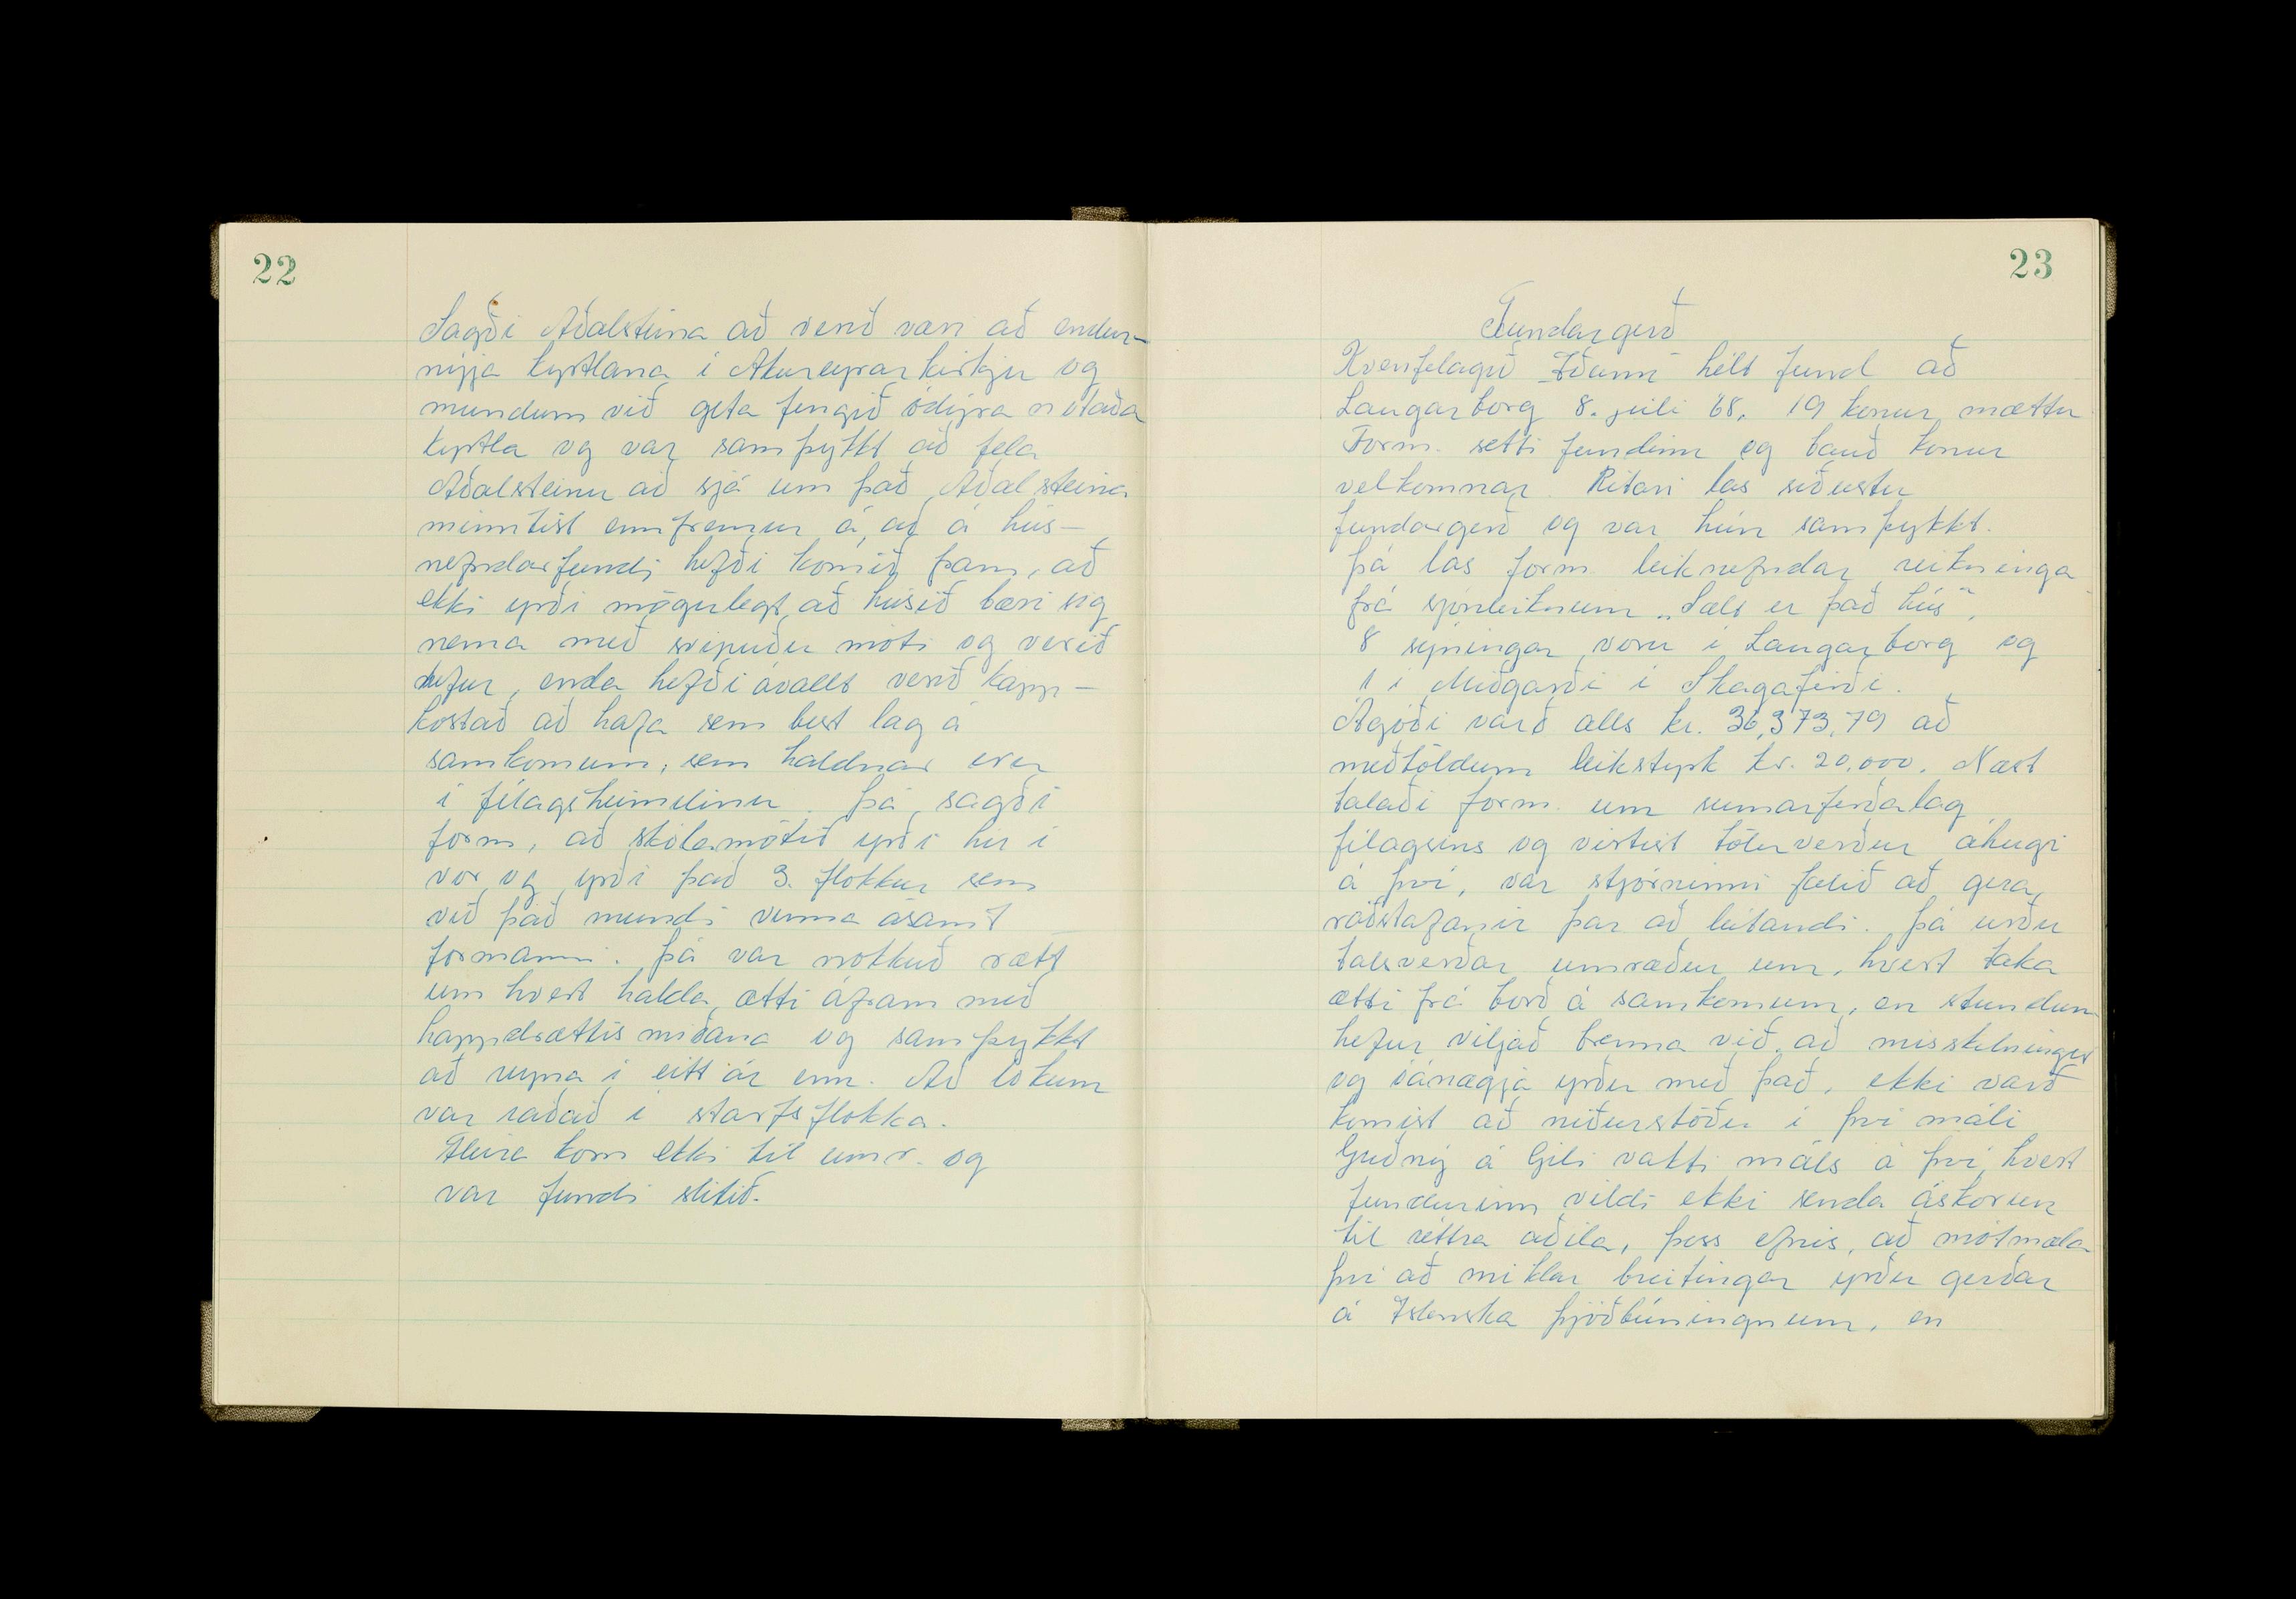 22
Sagði Aðalsteina að verið væri að endur-
nýja kyrtlana í Akureyrarkirkju og
mundum við geta fengið ódýra notaða
kyrtla og var samþykkt að fela
Aðalsteinu að sjá um það. Aðalsteina
minntist ennfremur á, að á hús-
nefndarfundi hefði komið fram, að
ekki yrði mögulegt að húsið bæri sig
nema með svipuðu móti og verið
hefur, enda hefði ávallt verið kapp-
kostað að hafa sem best lag á
samkomum, sem haldnar eru
í félagsheimilinu. Þá sagði
form, að skólamótið yrði hér í
vor og yrði það 3. flokkur sem
við það mundi vinna ásamt
formanni. Þá var nokkuð rætt
um hvort halda ætti áfram með
happdrættismiðana og samþykkt
að reyna í eitt ár enn. Að lokum
var raðað í starfsflokka.
Fleira kom ekki til umr. og
var fundi slitið.
23
Fundargerð
Kvenfelagið Iðunn hélt fund að
Laugarborg 8. júlí 68. 19 konur mættu
Form. setti fundinn og bauð konur
velkomnar. Ritari las síðustu
fundargerð og var hún samþykkt.
Þá las form leiknefndar reikninga
frá sjónleiknum „Sælt er það hús",
8 sýningar voru í Laugarborg og
1 í Miðgarði í Skagafirði.
Ágóði varð alls kr. 36,373,79 að
meðtöldum leikstyrk kr. 20,000. Næst
talaði form. um sumarferðalag
félagsins og virtist töluverður áhugi
á því, var stjórninni falið að gera
ráðstafanir þar að lútandi. Þá urðu
talsverðar umræður um, hvort taka
ætti frá borð á samkomum, en stundum
hefur viljað brenna við, að misskilningur
og óánægja yrðu með það, ekki varð
komist að niðurstöðu í því máli
Guðný á Gili vakti máls á því, hvort
fundurinn vildi ekki senda áskorun
til réttra aðila, þess efnis, að mótmæla
því að miklar breitingar yrðu gerðar
á Islenska þjóðbúningnum, en